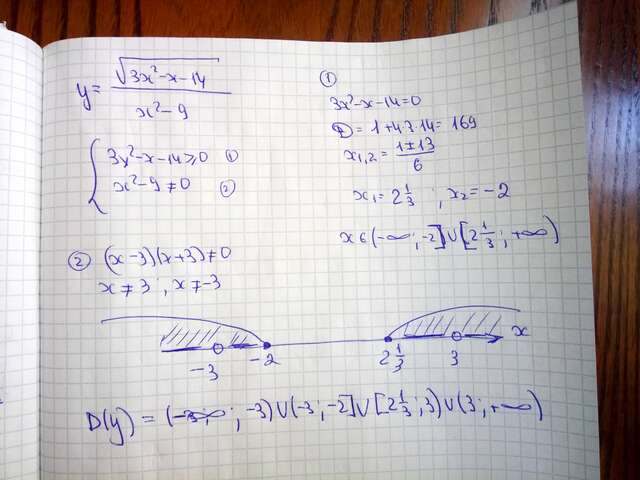 y = √(3x²-x-14) / (x²-9)
{ 3x²-x-14 ≥ 0 ①
x²-9 ≠ 0 ②
①
3x²-x-14=0
D = 1+4·3·14 = 169
x₁,₂ = (1±13)/6
x₁ = 2 1/3 ; x₂ = -2
x ∈ (-∞; -2] ∪ [2 1/3; +∞)
② (x-3)(x+3) ≠ 0
x ≠ 3 ; x ≠ -3
-3 -2 2 1/3 3 x
D(y) = (-∞; -3) ∪ (-3; -2] ∪ [2 1/3; 3) ∪ (3; +∞)